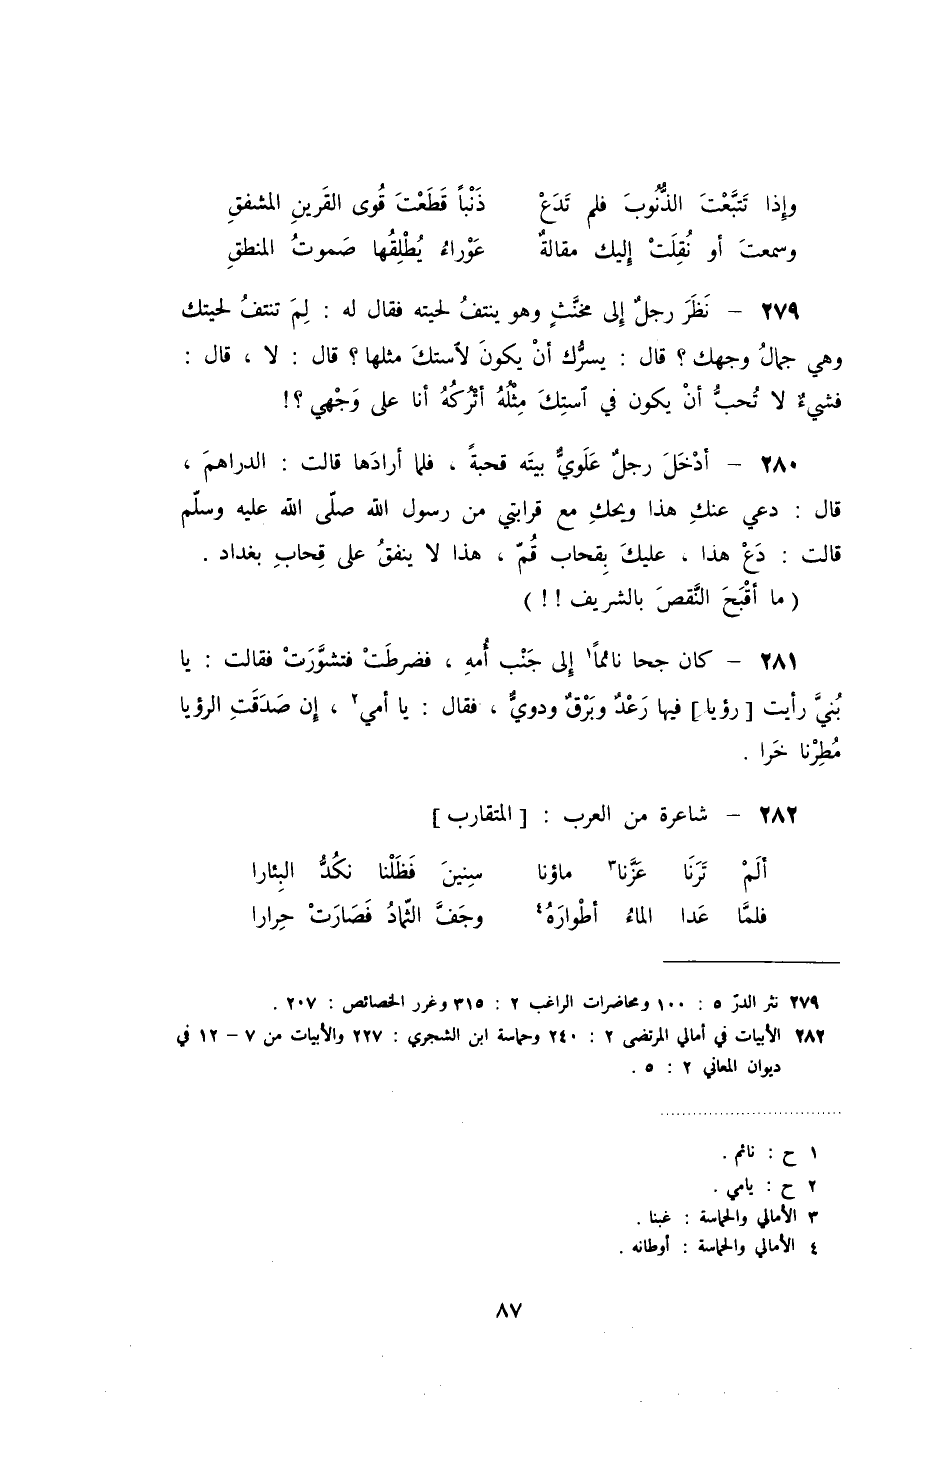 وإذا تَتَبَّعْتَ الذُّنُوبَ فلم تَدَعْ ذَنْباً قَطَعْتَ قُوى القَرينِ المشفقِ
وسمعتَ أو نُقِلَتْ إليك مقالةٌ عَوْراءُ يُطْلِقُها صَموتُ المنطقِ
٢٧٩ – نَظَرَ رجلٌ إلى مخنَّثٍ وهو ينتفُ لحيته فقال له : لِمَ تنتفُ لحيتك
وهي جمالُ وجهك ؟ قال : يسرُّك أنْ يكونَ لآستكَ مثلها ؟ قال : لا ، قال :
فشيءٌ لا تُحبُّ أنْ يكون في آستِكَ مِثْلُهُ أتْرُكُهُ أنا على وَجْهي ؟!
٢٨٠ – أدْخَلَ رجلٌ عَلَويٌّ بيتَه قحبةً ، فلما أرادَها قالت : الدراهمَ ،
قال : دعي عنكِ هذا ويحكِ مع قرابتي من رسول الله صلّى الله عليه وسلّم
قالت : دَعْ هذا ، عليكَ بِقحاب قُمّ ، هذا لا ينفقُ على قِحابِ بغداد .
( ما أقْبَحَ النَّقصَ بالشريف !! )
٢٨١ – كان جحا نائماً١ إلى جَنْب أُمهِ ، فضرطَتْ فتشوَّرَتْ فقالت : يا
بُنيَّ رأيت [ رؤيا ] فيها رَعْدٌ وبَرْقٌ ودويٌّ ، فقال : يا أمي٢ ، إن صَدَقَتِ الرؤيا
مُطِرْنا خَرا .
٢٨٢ – شاعرة من العرب : [ المتقارب ]
ألَمْ تَرَنَا عَزَّنا٣ ماؤنا سِنِينَ فَظَلْنا نكُدُّ البِئارا
فلمَّا عَدا الماءُ أطْوارَهُ٤ وجَفَّ الثّمادُ فَصَارَتْ حِرارا
٢٧٩ نثر الدرّ ٥ : ١٠٠ ومحاضرات الراغب ٢ : ٣١٥ وغرر الخصائص : ٢٠٧ .
٢٨٢ الأبيات في أمالي المرتضى ٢ : ٢٤٠ وحماسة ابن الشجري : ٢٢٧ والأبيات من ٧ – ١٢ في
ديوان المعاني ٢ : ٥ .
١ ح : نائم .
٢ ح : يامي .
٣ الأمالي والحماسة : غبنا .
٤ الأمالي والحماسة : أوطانه .
٨٧